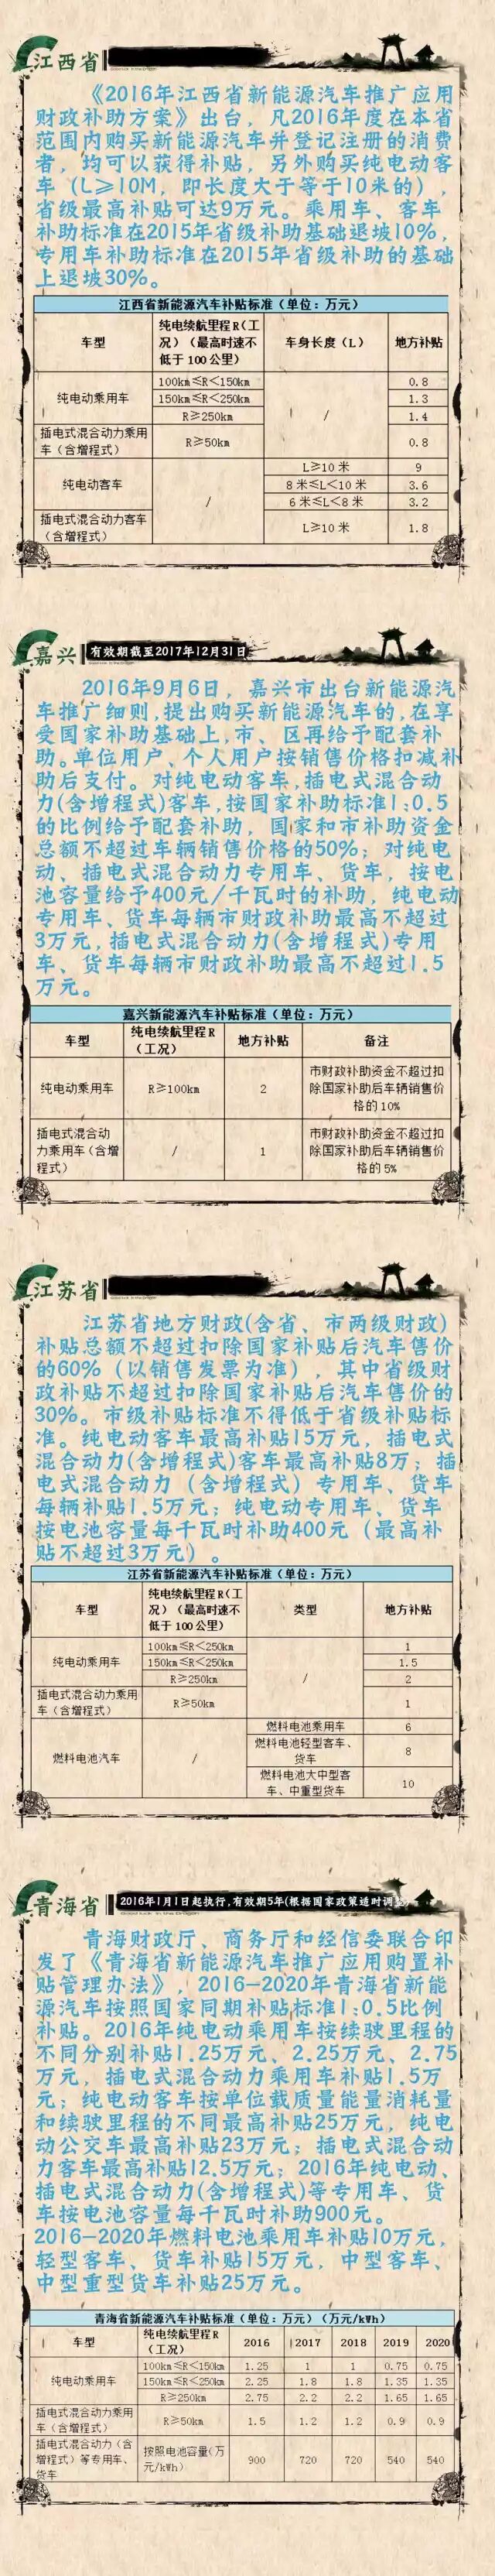 江西省
《2016年江西省新能源汽车推广应用
财政补助方案》出台，凡2016年度在本省
范围内购买新能源汽车并登记注册的消费
者，均可以获得补贴，另外购买纯电动客
车（L≥10M，即长度大于等于10米的），
省级最高补贴可达9万元。乘用车、客车
补助标准在2015年省级补助基础退坡10%，
专用车补助标准在2015年省级补助的基础
上退坡30%。
江西省新能源汽车补贴标准（单位：万元）
车型 纯电续航里程R（工况）（最高时速不低于100公里） 车身长度（L） 地方补贴
纯电动乘用车 100km≤R＜150km / 0.8
150km≤R＜250km 1.3
R≥250km 1.4
插电式混合动力乘用车（含增程式） R≥50km 0.8
纯电动客车 / L≥10米 9
8米≤L＜10米 3.6
6米≤L＜8米 3.2
插电式混合动力客车（含增程式） L≥10米 1.8
嘉兴 有效期截至2017年12月31日
2016年9月6日，嘉兴市出台新能源汽
车推广细则，提出购买新能源汽车的，在享
受国家补助基础上，市、区再给予配套补
助。单位用户、个人用户按销售价格扣减补
助后支付。对纯电动客车，插电式混合动
力(含增程式)客车，按国家补助标准1:0.5
的比例给予配套补助，国家和市补助资金
总额不超过车辆销售价格的50%；对纯电
动、插电式混合动力专用车、货车，按电
池容量给予400元/千瓦时的补助，纯电动
专用车、货车每辆市财政补助最高不超过
3万元，插电式混合动力(含增程式)专用
车、货车每辆市财政补助最高不超过1.5
万元。
嘉兴新能源汽车补贴标准（单位：万元）
车型 纯电续航里程R（工况） 地方补贴 备注
纯电动乘用车 R≥100km 2 市财政补助资金不超过扣除国家补助后车辆销售价格的10%
插电式混合动力乘用车（含增程式） / 1 市财政补助资金不超过扣除国家补助后车辆销售价格的5%
江苏省
江苏省地方财政(含省、市两级财政)
补贴总额不超过扣除国家补贴后汽车售价
的60%（以销售发票为准），其中省级财
政补贴不超过扣除国家补贴后汽车售价的
30%。市级补贴标准不得低于省级补贴标
准。纯电动客车最高补贴15万元，插电式
混合动力(含增程式)客车最高补贴8万；插
电式混合动力（含增程式）专用车、货车
每辆补贴1.5万元；纯电动专用车、货车
按电池容量每千瓦时补助400元（最高补
贴不超过3万元）。
江苏省新能源汽车补贴标准（单位：万元）
车型 纯电续航里程R（工况）（最高时速不低于100公里） 类型 地方补贴
纯电动乘用车 100km≤R＜250km / 1
150km≤R＜250km 1.5
R≥250km 2
插电式混合动力乘用车（含增程式） R≥50km 1
燃料电池汽车 / 燃料电池乘用车 6
燃料电池轻型客车、货车 8
燃料电池大中型客车、中重型货车 10
青海省 2016年1月1日起执行，有效期5年(根据国家政策适时调整)
青海财政厅、商务厅和经信委联合印
发了《青海省新能源汽车推广应用购置补
贴管理办法》，2016—2020年青海省新能
源汽车按照国家同期补贴标准1:0.5比例
补贴。2016年纯电动乘用车按续驶里程的
不同分别补贴1.25万元、2.25万元、2.75
万元，插电式混合动力乘用车补贴1.5万
元；纯电动客车按单位载质量能量消耗量
和续驶里程的不同最高补贴25万元，纯电
动公交车最高补贴23万元；插电式混合动
力客车最高补贴12.5万元；2016年纯电动、
插电式混合动力(含增程式)等专用车、货
车按电池容量每千瓦时补助900元。
2016—2020年燃料电池乘用车补贴10万元，
轻型客车、货车补贴15万元，中型客车、
中型重型货车补贴25万元。
青海省新能源汽车补贴标准（单位：万元）（万元/kWh）
车型 纯电续航里程R（工况） 2016 2017 2018 2019 2020
纯电动乘用车 100km≤R＜150km 1.25 1 1 0.75 0.75
150km≤R＜250km 2.25 1.8 1.8 1.35 1.35
R≥250km 2.75 2.2 2.2 1.65 1.65
插电式混合动力乘用车（含增程式） R≥50km 1.5 1.2 1.2 0.9 0.9
插电式混合动力（含增程式）等专用车、货车 按照电池容量(万元/kWh） 900 720 720 540 540